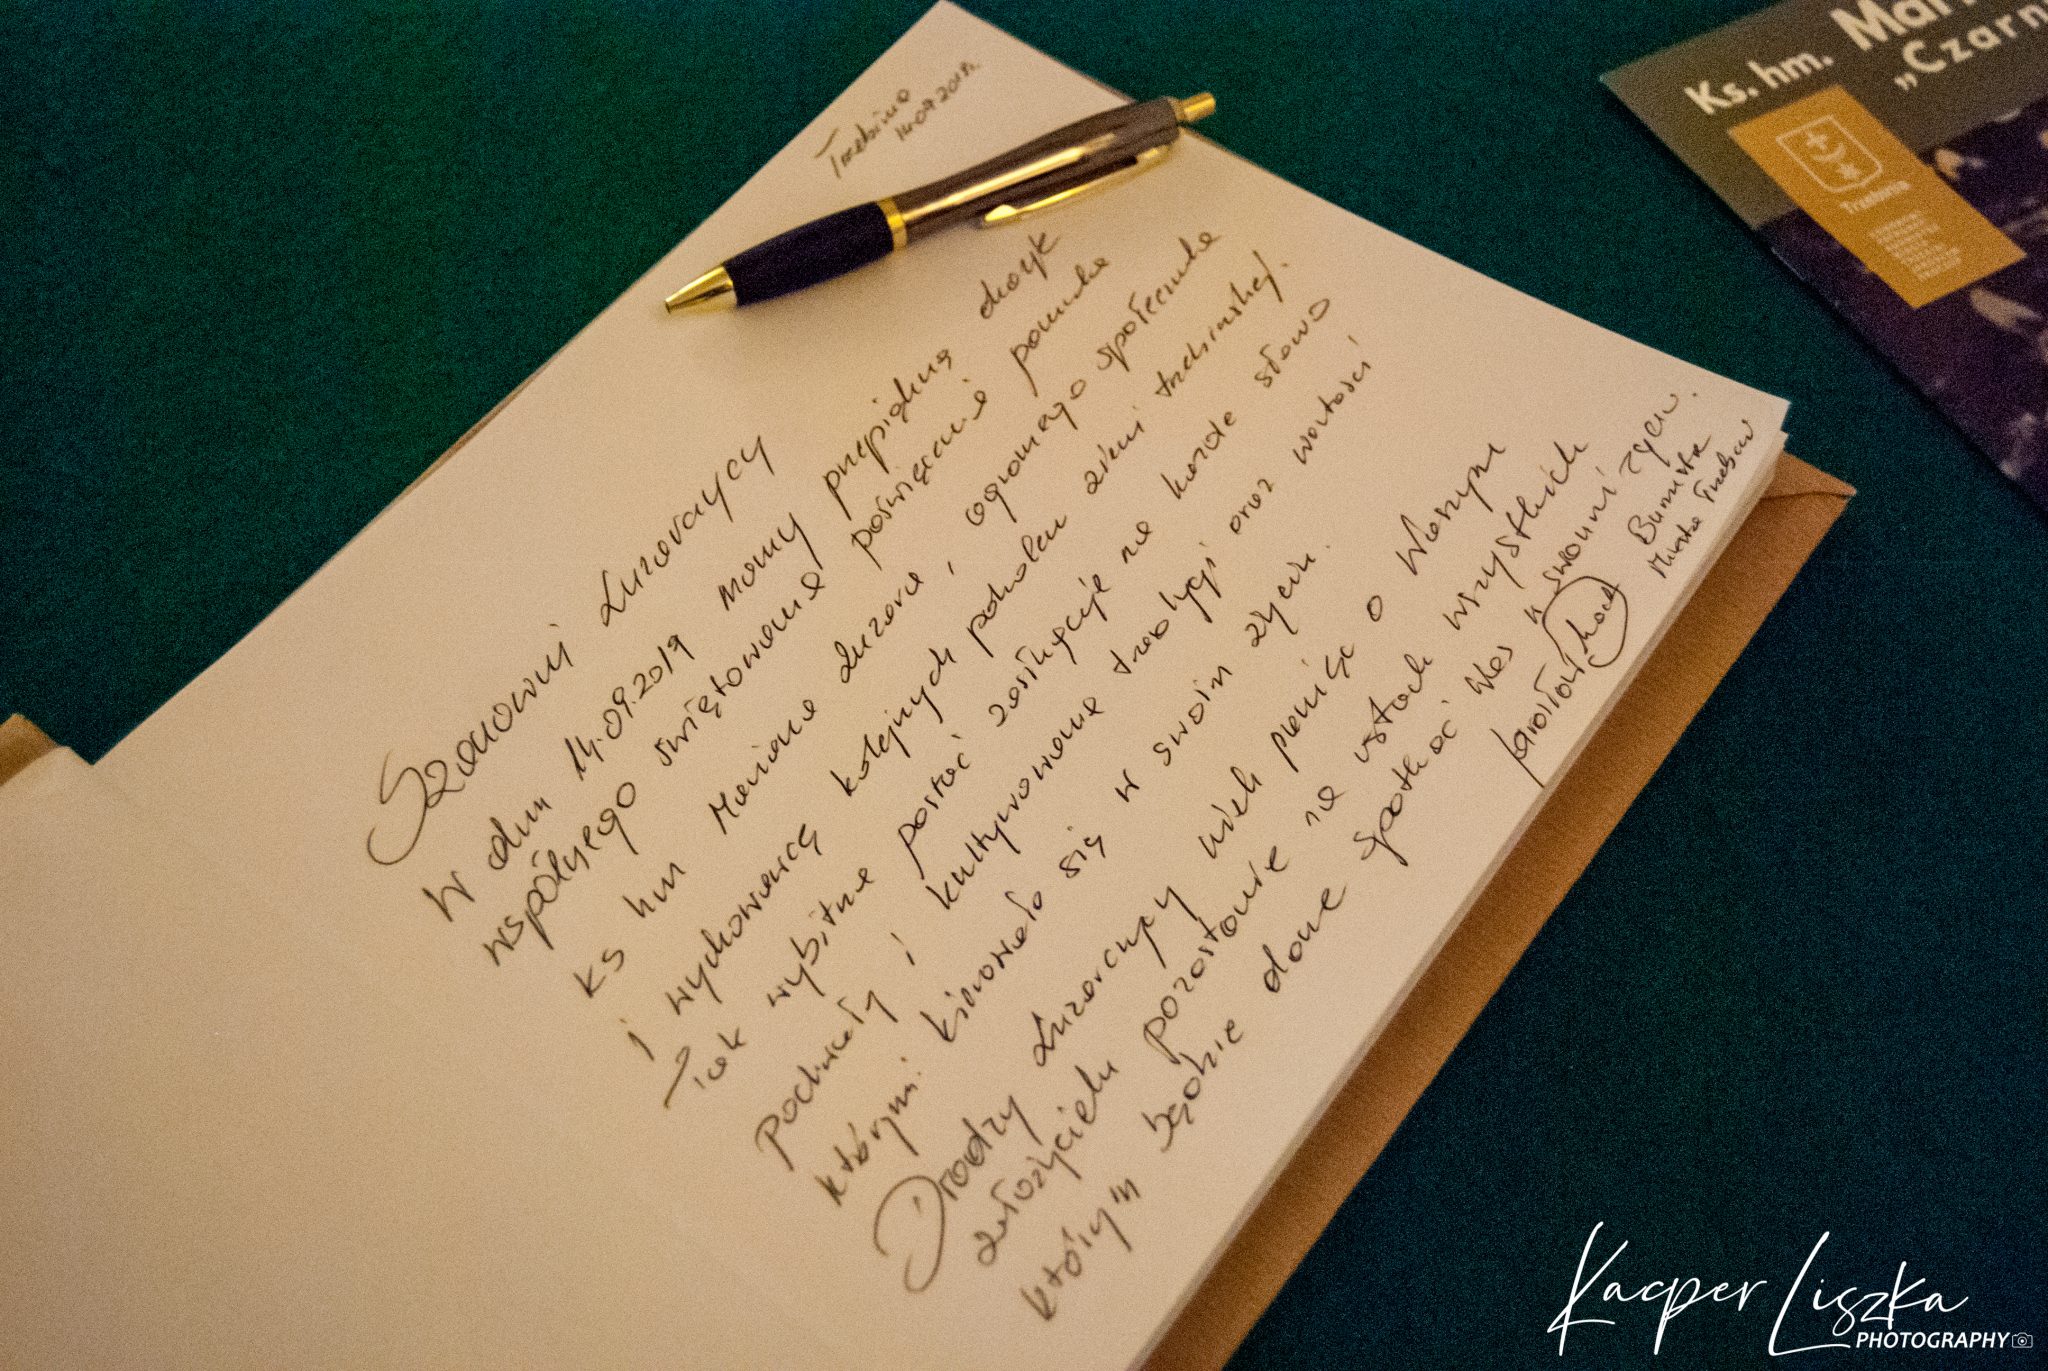 Trzebinia
14.09.2019r.
Szanowni Luzarowcy
W dniu 14.09.2019 mamy przepiękną okazję
wspólnego świętowania poświęcenie pomnika
ks hm Mariana Luzara, ogromnego społecznika
i wychowawcę kolejnych pokoleń ziemi trzebińskiej.
Tak wybitna postać zasługuje na każde słowo
pochwały i kultywowanie tradycji oraz wartości
którymi kierowało się w swoim życiu.
Drodzy niech pamięć o Waszym
założycielu pozostanie na ustach wszystkich
których będzie dane spotkać Was w swoim życiu.
Jarosław
Burmistrz
Miasta Trzebini
Ks. hm.
„Czarn
Trzebinia
Kacper Liszka
PHOTOGRAPHY